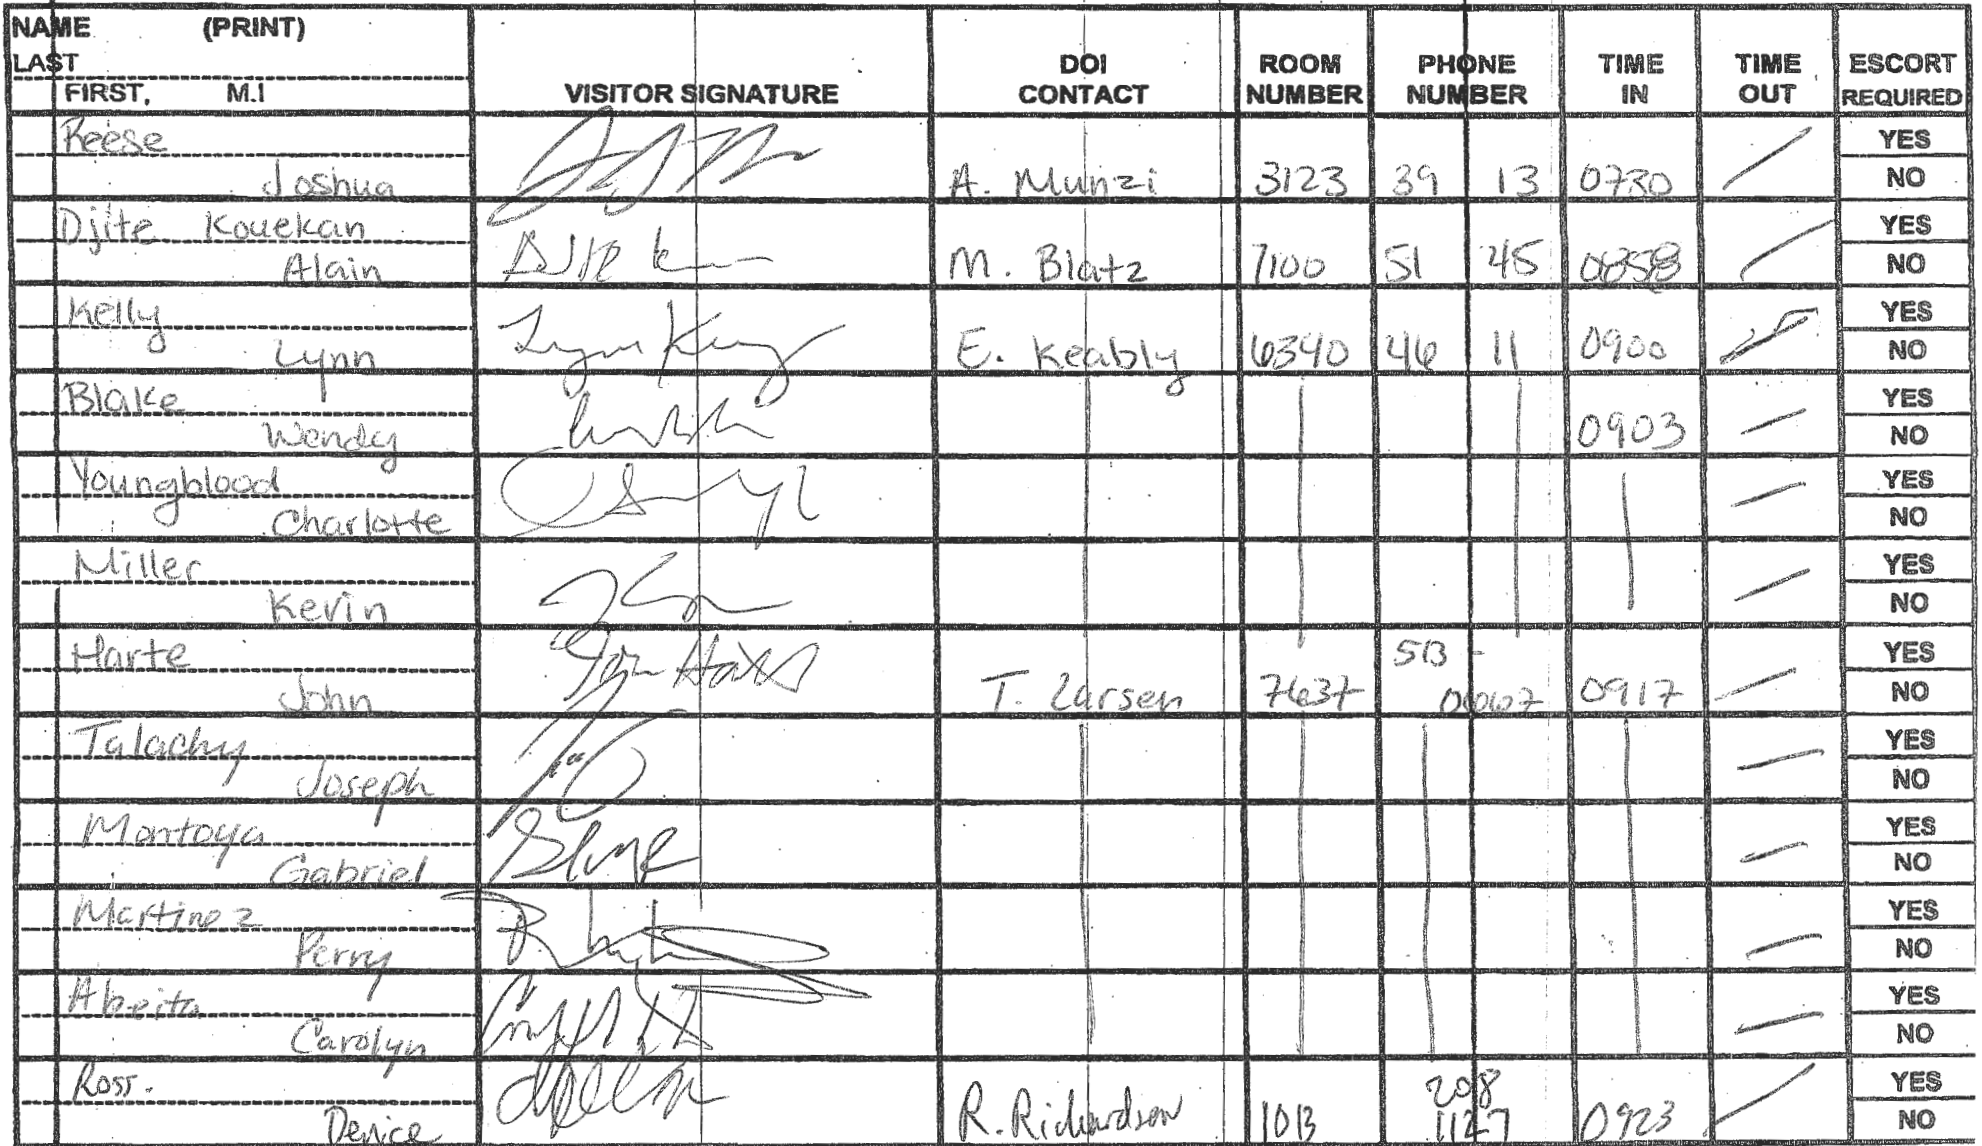 NAME (PRINT)
LAST
FIRST, M.I
VISITOR SIGNATURE
DOI CONTACT
ROOM NUMBER
PHONE NUMBER
TIME IN
TIME OUT
ESCORT REQUIRED
Reese
Joshua
A. Munzi 3123 39 13 0730
YES
NO
Djite Kouekan
Alain
M. Blatz 7100 51 45 0858
YES
NO
Kelly
Lynn
Lynn Kelly
E. Keably 6340 46 11 0900
YES
NO
Blake
Wendy
0903
YES
NO
Youngblood
Charlotte
YES
NO
Miller
Kevin
YES
NO
Harte
John
John Harte
T. Larsen 7637 513 - 0667 0917
YES
NO
Talachy
Joseph
YES
NO
Montoya
Gabriel
YES
NO
Martinez
Perry
YES
NO
Abeita
Carolyn
YES
NO
Ross.
Denice
R. Richardson 1013 208 1127 0923
YES
NO